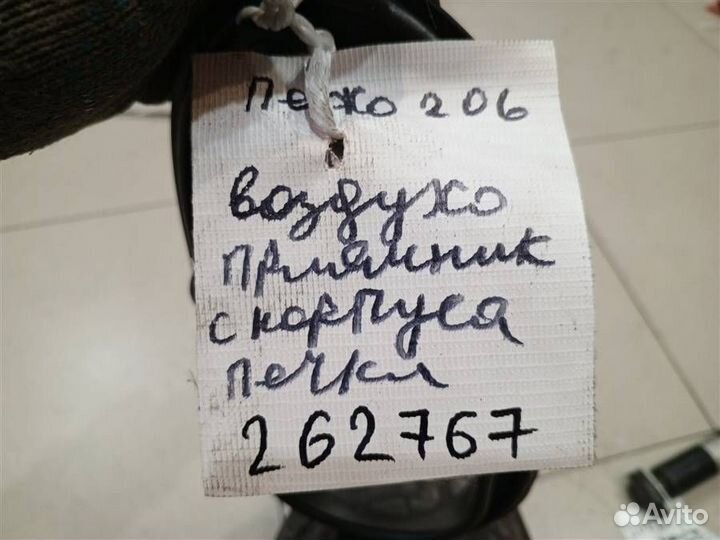 Пежо 206
воздухо
приямник
с корпуса
печки
262767
Avito